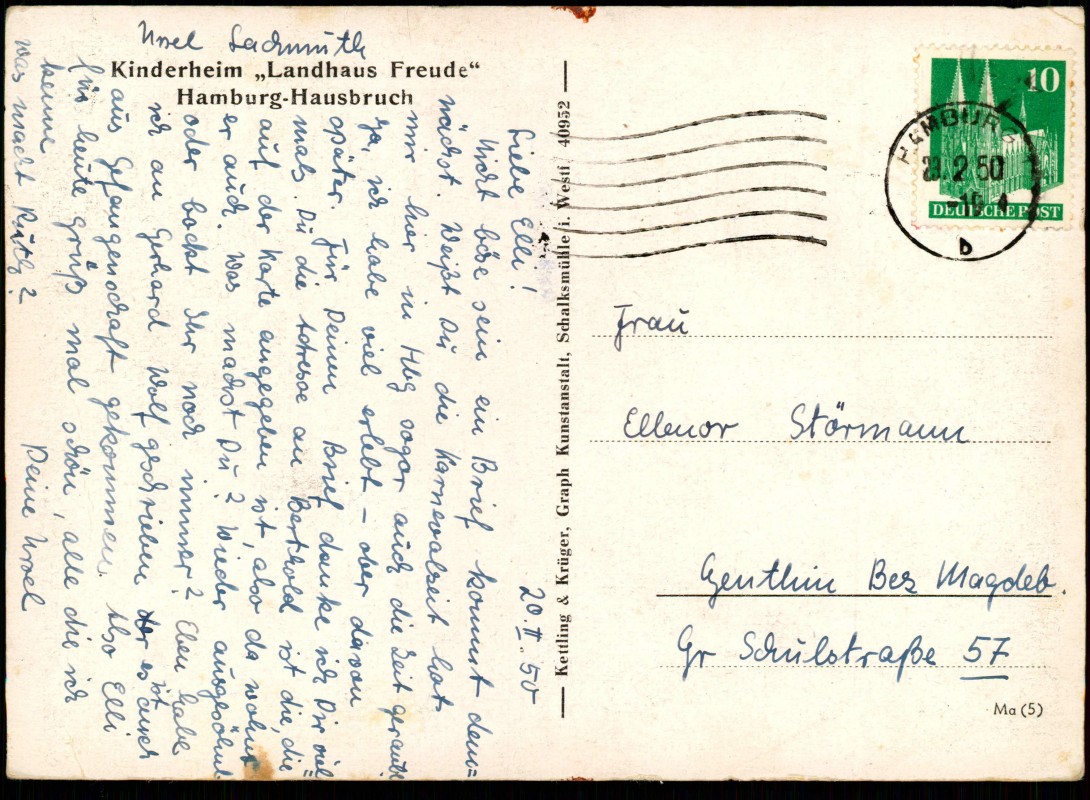 Ursel Lachmuth
Kinderheim „Landhaus Freude“
Hamburg-Hausbruch
20. II. 50
Liebe Elli!
Nicht böse sein ein Brief kommt dem=
nächst. Weißt Du die Karnevalszeit hat
mir hier in Hbg sogar auch die Zeit geraubt
ja, ich habe viel erlebt – aber davon
später. Für Deinen Brief danke ich Dir viel=
mals. Du die Adresse an Berthold ist die, die
auf der Karte angegeben ist, also da wohnt
er auch. Was machst Du? Wieder ausgesöhnt
oder bockt Ihr noch immer? Eben habe
ich an Gerhard Wolf geschrieben er ist auch
aus Gefangenschaft gekommen. Also Elli
für heute grüß mal schön, alle die ich
kenne
Deine Ursel
was macht Ruth?
Kettling & Krüger, Graph Kunstanstalt, Schalksmühle i. Westf 40952
10
DEUTSCHE POST
HAMBURG
2.50
b
Frau
Ellenor Störmann
Genthin Bez Magdeb.
Gr Schulstraße 57
Ma (5)